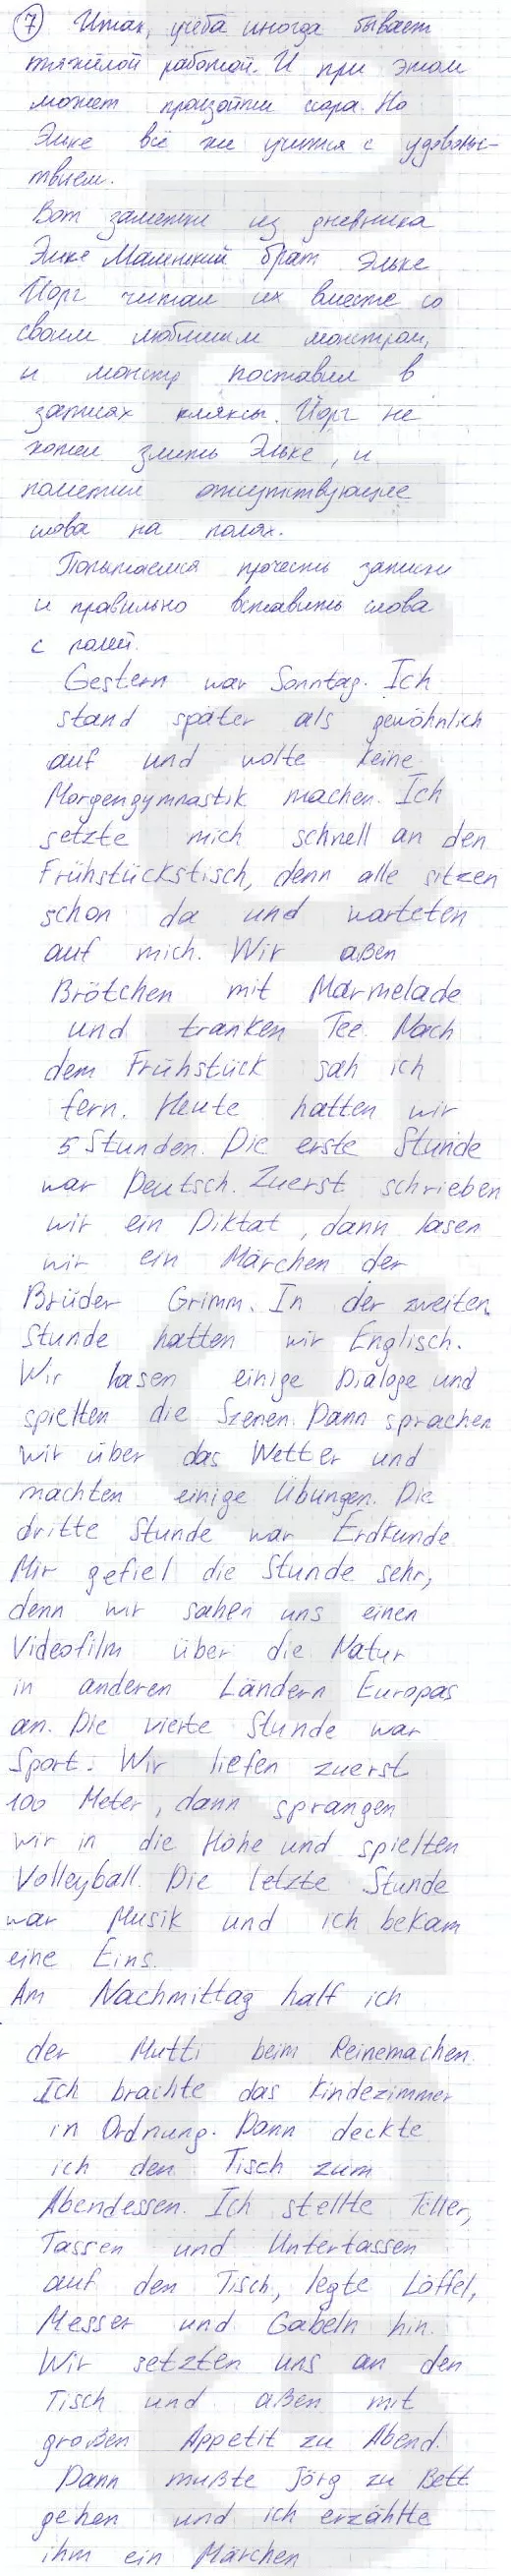 7 Итак, учёба иногда бывает
тяжёлой работой. И при этом
может произойти ссора. Но
Эльке всё же учится с удоволь-
ствием.
Вот заметки из дневника
Эльке Маленький брат Эльке
Йорг читал их вместе со
своим любимым монстром,
и монстр поставил в
записях кляксы. Йорг не
хотел злить Эльке, и
пометил отсутствующие
слова на полях.
Попытаемся прочесть записи
и правильно вставить слова
с полей.
Gestern war Sonntag. Ich
stand später als gewöhnlich
auf und wolte keine
Morgengymnastik machen. Ich
setzte mich schnell an den
Frühstückstisch, denn alle sitzen
schon da und warteten
auf mich. Wir aßen
Brötchen mit Marmelade
und tranken Tee. Nach
dem Frühstück sah ich
fern. Heute hatten wir
5 Stunden. Die erste Stunde
war Deutsch. Zuerst schrieben
wir ein Diktat, dann lasen
wir ein Märchen der
Brüder Grimm. In der zweiten
Stunde hatten wir Englisch.
Wir lasen einige Dialoge und
spielten die Szenen. Dann sprachen
wir über das Wetter und
machten einige Übungen. Die
dritte Stunde war Erdkunde
Mir gefiel die Stunde sehr,
denn wir sahen uns einen
Videofilm über die Natur
in anderen Ländern Europas
an. Die vierte Stunde war
Sport. Wir liefen zuerst
100 Meter, dann sprangen
wir in die Höhe und spielten
Volleyball. Die letzte Stunde
war Musik und ich bekam
eine Eins.
Am Nachmittag half ich
der Mutti beim Reinemachen.
Ich brachte das Kindezimmer
in Ordnung. Dann deckte
ich den Tisch zum
Abendessen. Ich stellte Teller,
Tassen und Untertassen
auf den Tisch, legte Löffel,
Messer und Gabeln hin.
Wir setzten uns an den
Tisch und aßen mit
großen Appetit zu Abend.
Dann mußte Jörg zu Bett
gehen und ich erzählte
ihm ein Märchen